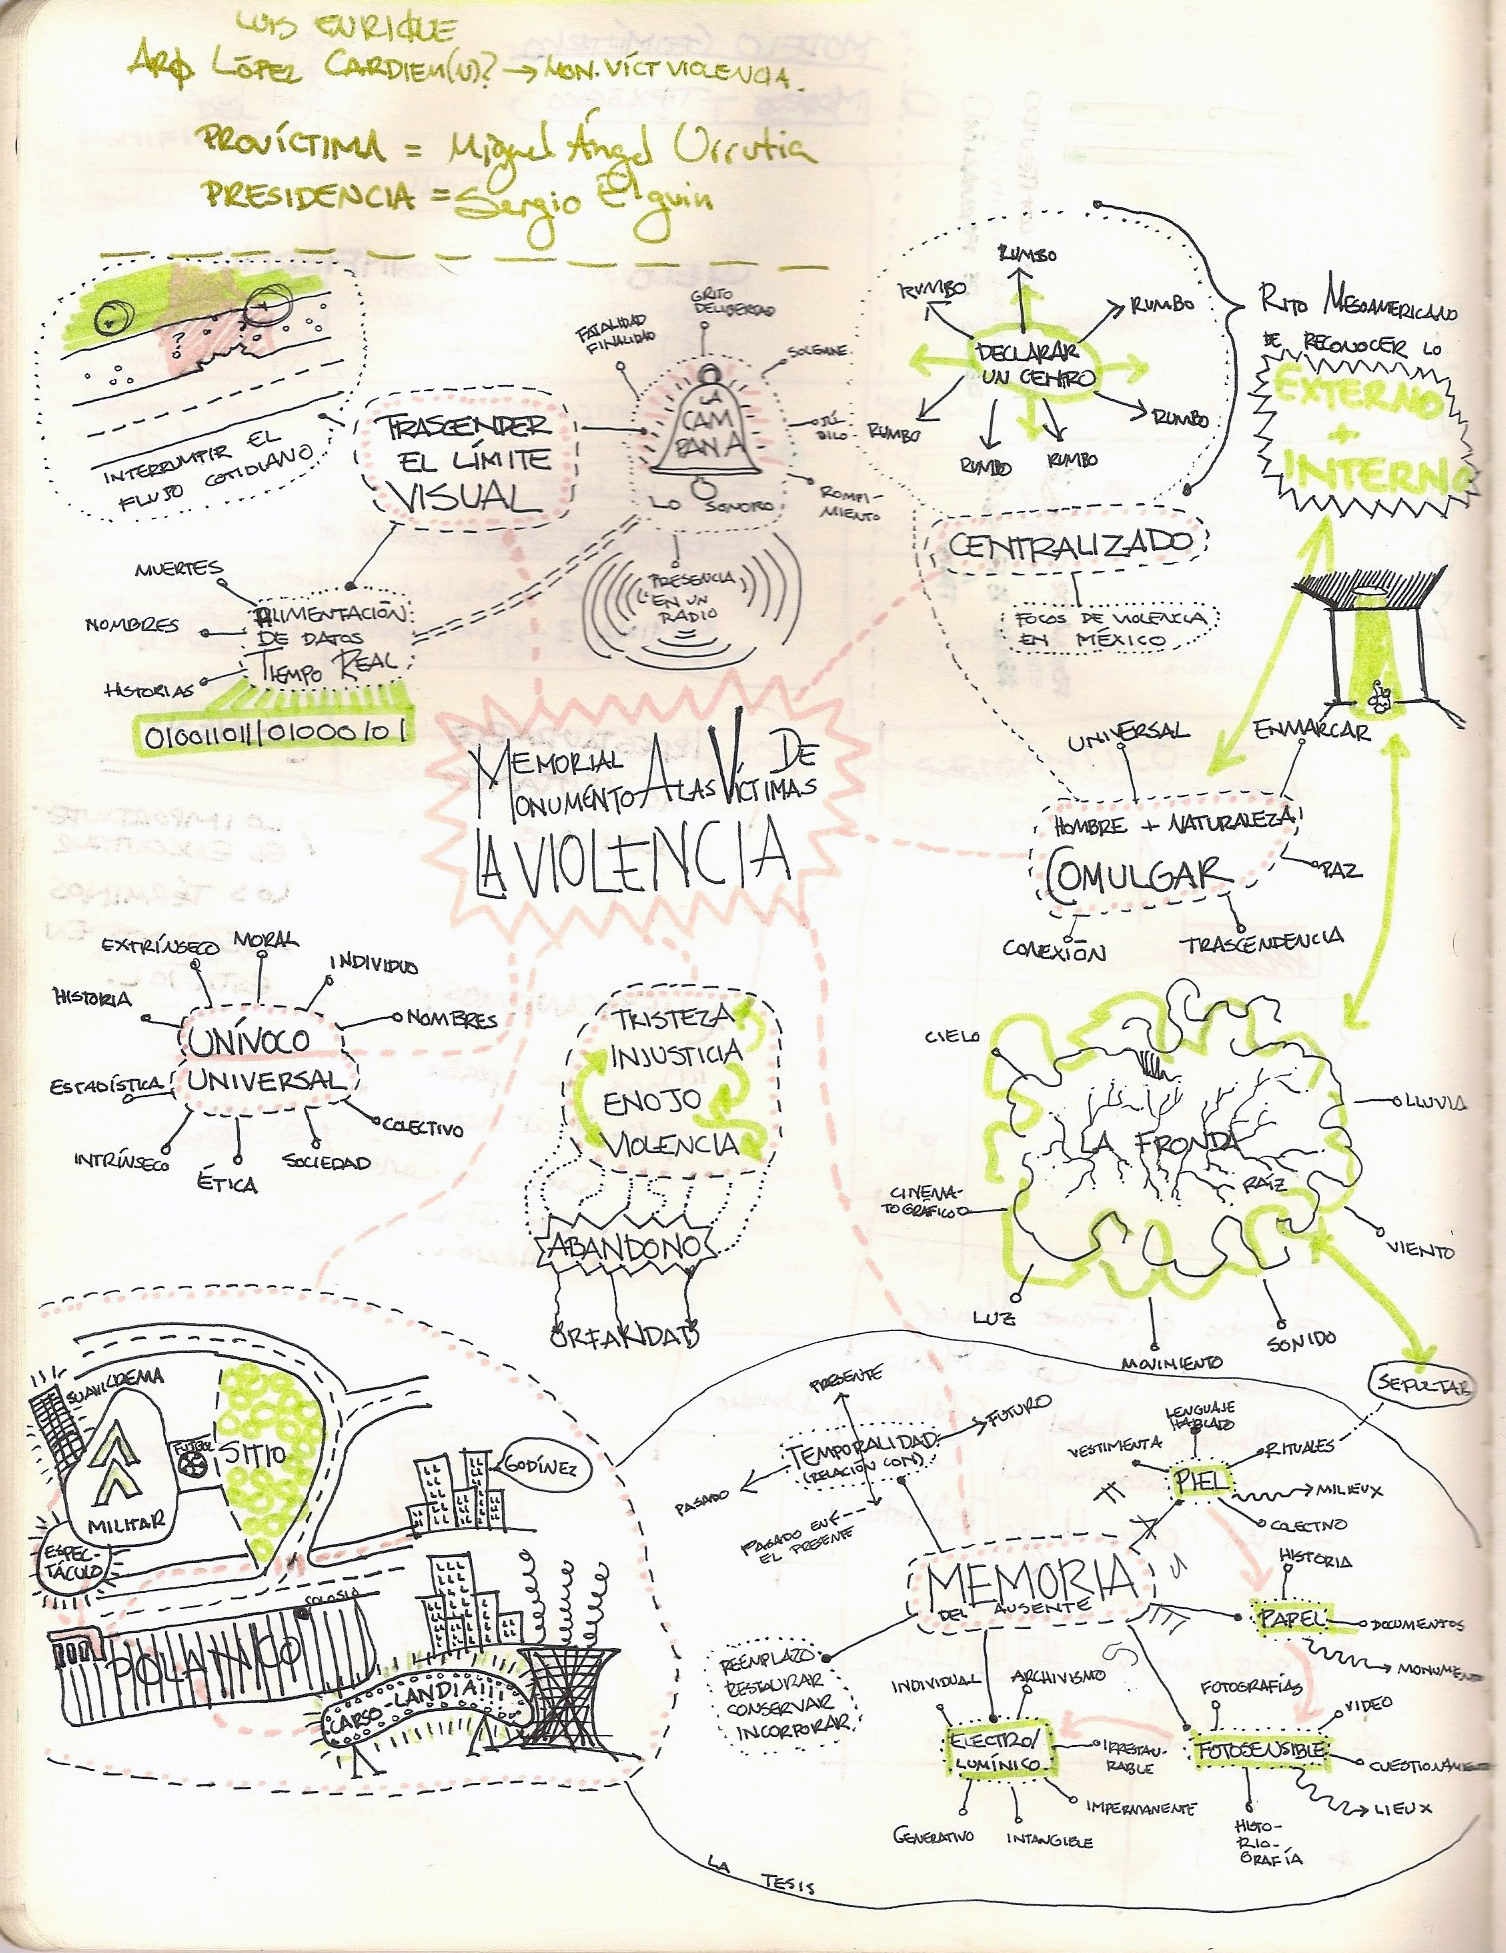 LUIS ENRIQUE
ARQ LÓPEZ CARDIEM(N)? → MON. VÍCT VIOLENCIA.
PROVÍCTIMA = Miguel Ángel Urrutia
PRESIDENCIA = Sergio Elguin
INTERRUMPIR EL
FLUJO COTIDIANO
TRASCENDER
EL LÍMITE
VISUAL
FATALIDAD
FINALIDAD
GRITO
DE LIBERTAD
SOLEMNE
LA
CAM
PANA
LO SONORO
ROMPI-
MIENTO
PRESENCIA
EN UN
RADIO
MUERTES
NOMBRES
HISTORIAS
ALIMENTACIÓN
DE DATOS
TIEMPO REAL
RUMBO
RUMBO
RUMBO
DECLARAR
UN CENTRO
RUMBO
RUMBO
RUMBO
RUMBO
RITO MESOAMERICANO
DE RECONOCER LO
EXTERNO
+
INTERNO
CENTRALIZADO
FOCOS DE VIOLENCIA
EN MÉXICO
MEMORIAL
MONUMENTO A LAS VÍCTIMAS DE
LA VIOLENCIA
UNIVERSAL
ENMARCAR
HOMBRE + NATURALEZA
COMULGAR
PAZ
CONEXIÓN
TRASCENDENCIA
EXTRÍNSECO
MORAL
INDIVIDUO
HISTORIA
NOMBRES
UNÍVOCO
UNIVERSAL
ESTADÍSTICA
COLECTIVO
INTRÍNSECO
ÉTICA
SOCIEDAD
TRISTEZA
INJUSTICIA
ENOJO
VIOLENCIA
ABANDONO
ORFANDAD
CIELO
LLUVIA
LA FRONDA
RAÍZ
CINEMA-
TOGRÁFICO
VIENTO
LUZ
MOVIMIENTO
SONIDO
SEPULTAR
SUAVICREMA
MILITAR
FUTBOL
SITIO
ESPEC-
TÁCULO
GODÍNEZ
POLANCO
CARSO-LANDIA!!!
PRESENTE
FUTURO
TEMPORALIDAD
(RELACIÓN CON)
PASADO
PASADO EN
EL PRESENTE
LENGUAJE
HABLADO
VESTIMENTA
RITUALES
PIEL
MILIEUX
COLECTIVO
MEMORIA
DEL AUSENTE
HISTORIA
PAPEL
DOCUMENTOS
REEMPLAZO
RESTAURAR
CONSERVAR
INCORPORAR
INDIVIDUAL
ARCHIVISMO
ELECTRO/
LUMÍNICO
IRRESTAU-
RABLE
IMPERMANENTE
GENERATIVO
INTANGIBLE
FOTOGRAFÍAS
VIDEO
FOTOSENSIBLE
LIEUX
HISTO-
RIO-
GRAFÍA
LA TESIS